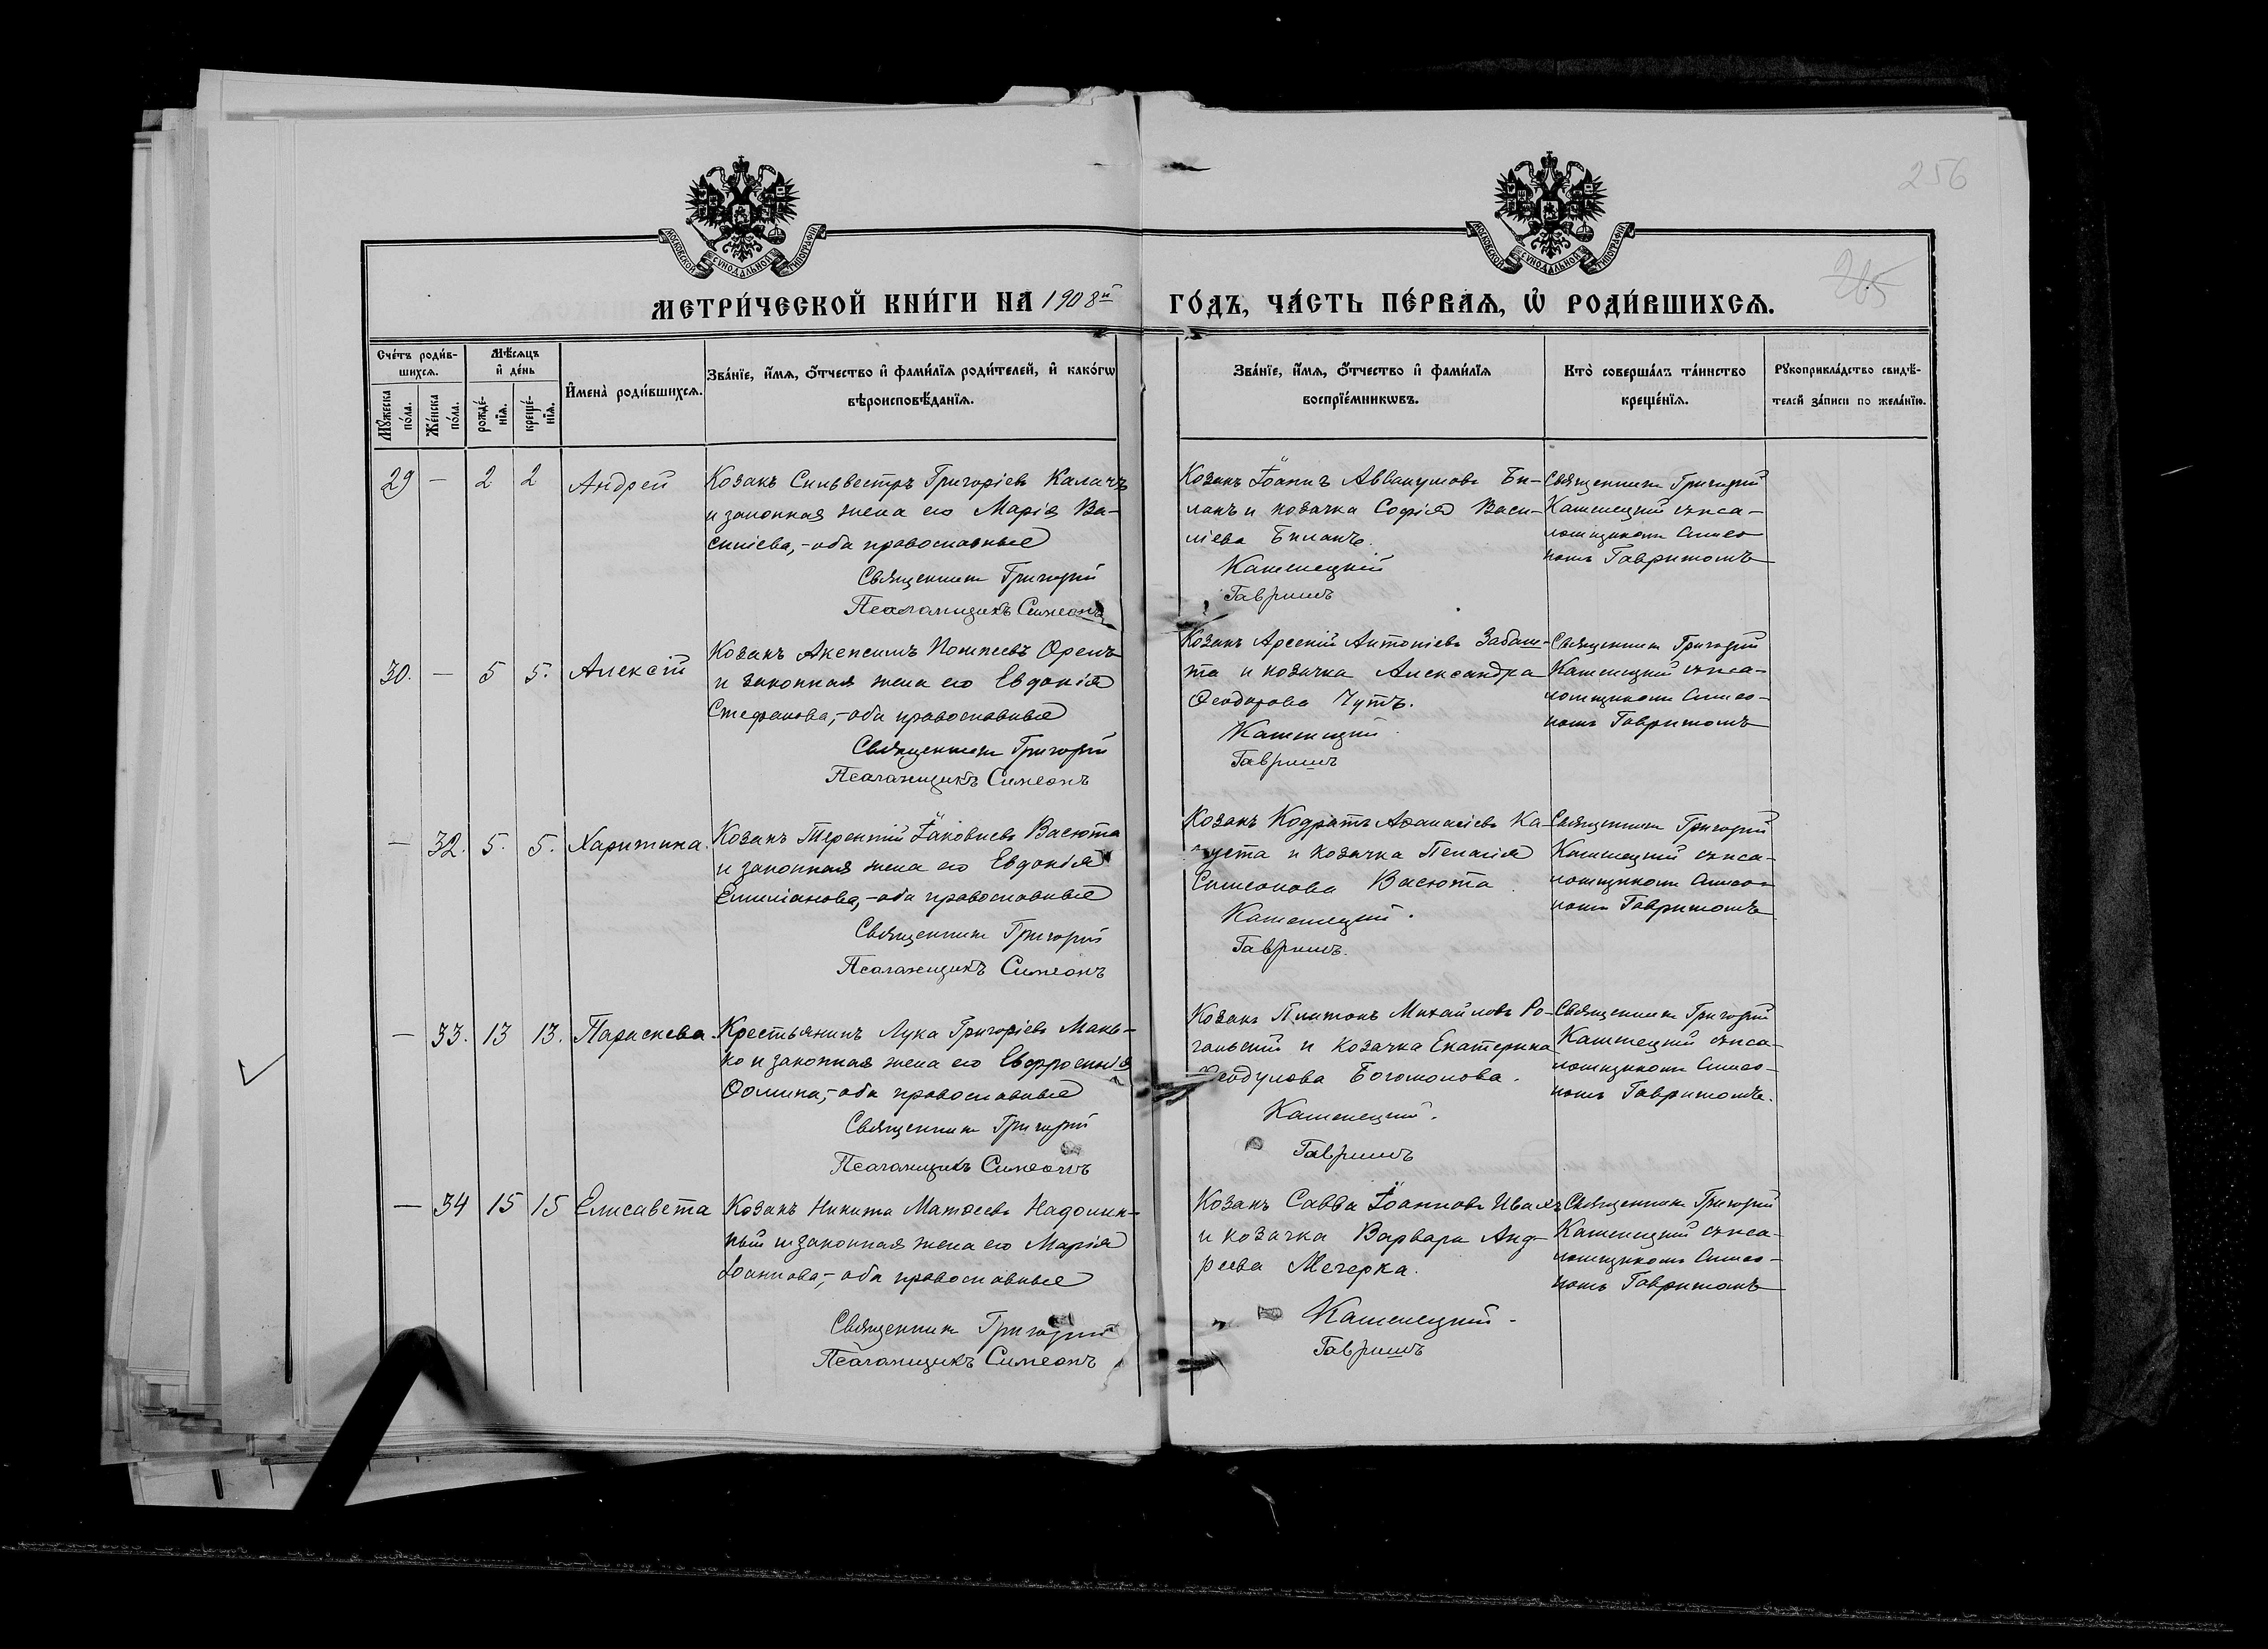 256
265
МОСКОВСКОЙ СѴНОДАЛЬНОЙ ТИПОГРАФІИ
МОСКОВСКОЙ СѴНОДАЛЬНОЙ ТИПОГРАФІИ
МЕТРИ́ЧЕСКОЙ КНИ́ГИ НА 1908й ГО́ДЪ, ЧА́СТЬ ПЕ́РВАѦ, Ѡ҆ РОДИ́ВШИХСѦ.
Сче́тъ роди́в-
шихсѧ.
Мѣ́сѧцъ
и҆ де́нь
Мꙋ́жеска
по́ла.
Же́нска
по́ла.
рожде́-
нїѧ.
креще́-
нїѧ.
И҆мена̀ роди́вшихсѧ.
Зва́нїе, и҆́мѧ, ѻ҆́тчество и҆ фами́лїѧ роди́телей, и҆ како́гѡ
вѣроисповѣ́данїѧ.
Зва́нїе, и҆́мѧ, ѻ҆́тчество и҆ фами́лїѧ
воспрїе́мникѡвъ.
Кто̀ соверша́лъ та́инство
креще́нїѧ.
Рꙋкоприкла́дство свидѣ́-
телей за́писи по жела́нїю.
29 — 2 2 Андрей
Козакъ Сильвестръ Григоріевъ Калачъ
и законная жена его Марія Ва-
силіева, - оба православные
Священникъ Григорій
Псаломщикъ Симеонъ
Козакъ Іоаннъ Аввакумовъ Би-
ланъ и козачка Софія Васи-
ліева Биланъ.
Каменецкій
Гавришъ
Священникъ Григорій
Каменецкій съ пса-
ломщикомъ Симео-
номъ Гавришомъ
30. — 5 5. Алексій
Козакъ Акепсимъ Помпеевъ Орелъ
и законная жена его Евдокія
Стефанова, - оба православные
Священникъ Григорій
Псаломщикъ Симеонъ
Козакъ Арсеній Антоніевъ Забаш-
та и козачка Александра
Ѳеодорова Чутъ.
Каменецкій
Гавришъ
Священникъ Григорій
Каменецкій съ пса-
ломщикомъ Симео-
номъ Гавришомъ
— 32. 5. 5. Харитина.
Козакъ Терентій Іаковлевъ Васюта
и законная жена его Евдокія
Емиліанова, - оба православные
Священникъ Григорій
Псаломщикъ Симеонъ
Козакъ Кодратъ Аѳанасіевъ Ка-
пуста и козачка Пелагія
Симеонова Васюта.
Каменецкій.
Гавришъ.
Священникъ Григорій
Каменецкій съ пса-
ломщикомъ Симео-
номъ Гавришомъ
— 33. 13 13. Параскева.
Крестьянинъ Лука Григоріевъ Макѣ-
ко и законная жена его Евфросинія
Ѳомина, - оба православные
Священникъ Григорій
Псаломщикъ Симеонъ
Козакъ Платонъ Михайловъ Ро-
гальскій и козачка Екатерина
Ѳеодулова Богомолова.
Каменецкій.
Гавришъ
Священникъ Григорій
Каменецкій съ пса-
ломщикомъ Симео-
номъ Гавришомъ.
— 34 15 15 Елисавета
Козакъ Никита Матѳеевъ Надолин-
ный и законная жена его Марія
Іоаннова, - оба православные
Священникъ Григорій
Псаломщикъ Симеонъ
Козакъ Савва Іоанновъ Ивахъ
и козачка Варвара Анд-
реева Мечерка.
Каменецкій.
Гавришъ
Священникъ Григорій
Каменецкій съ пса-
ломщикомъ Симео-
номъ Гавришомъ